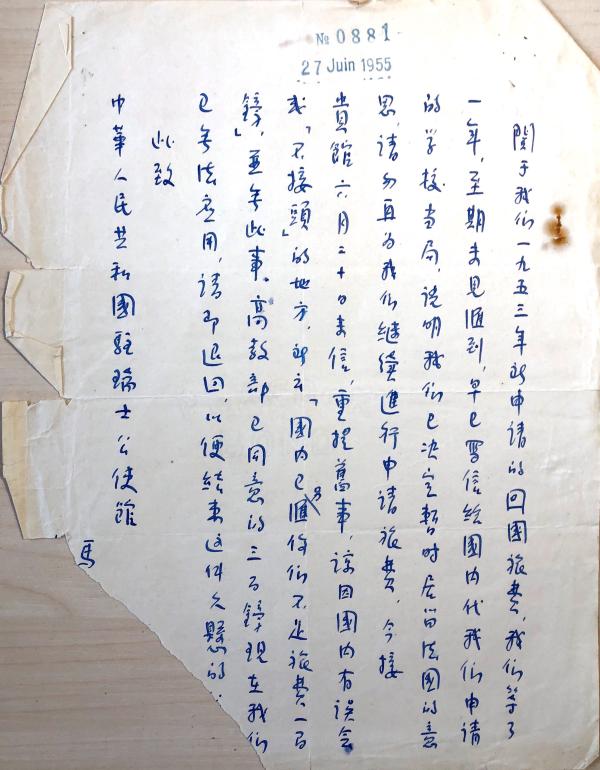 № 0881
27 Juin 1955
関于我们一九五三年所申请的回國旅费,我们等了
一年,至期未見匯到,早已写信给國内代我们申请
的学校当局,说明我们已决定暫时居留法國的意
思,请勿再为我们继续進行申请旅费,今接
貴館六月二十日来信,重提舊事,諒因國内有误会
或「不接頭」的地方,所云「國内已匯你们不足旅费一百
鎊」,並無此事.高教部已同意的三百鎊現在我们
已無法应用,请即退回,以便结束这件久懸的
此致
中華人民共和國駐瑞士公使館
馬